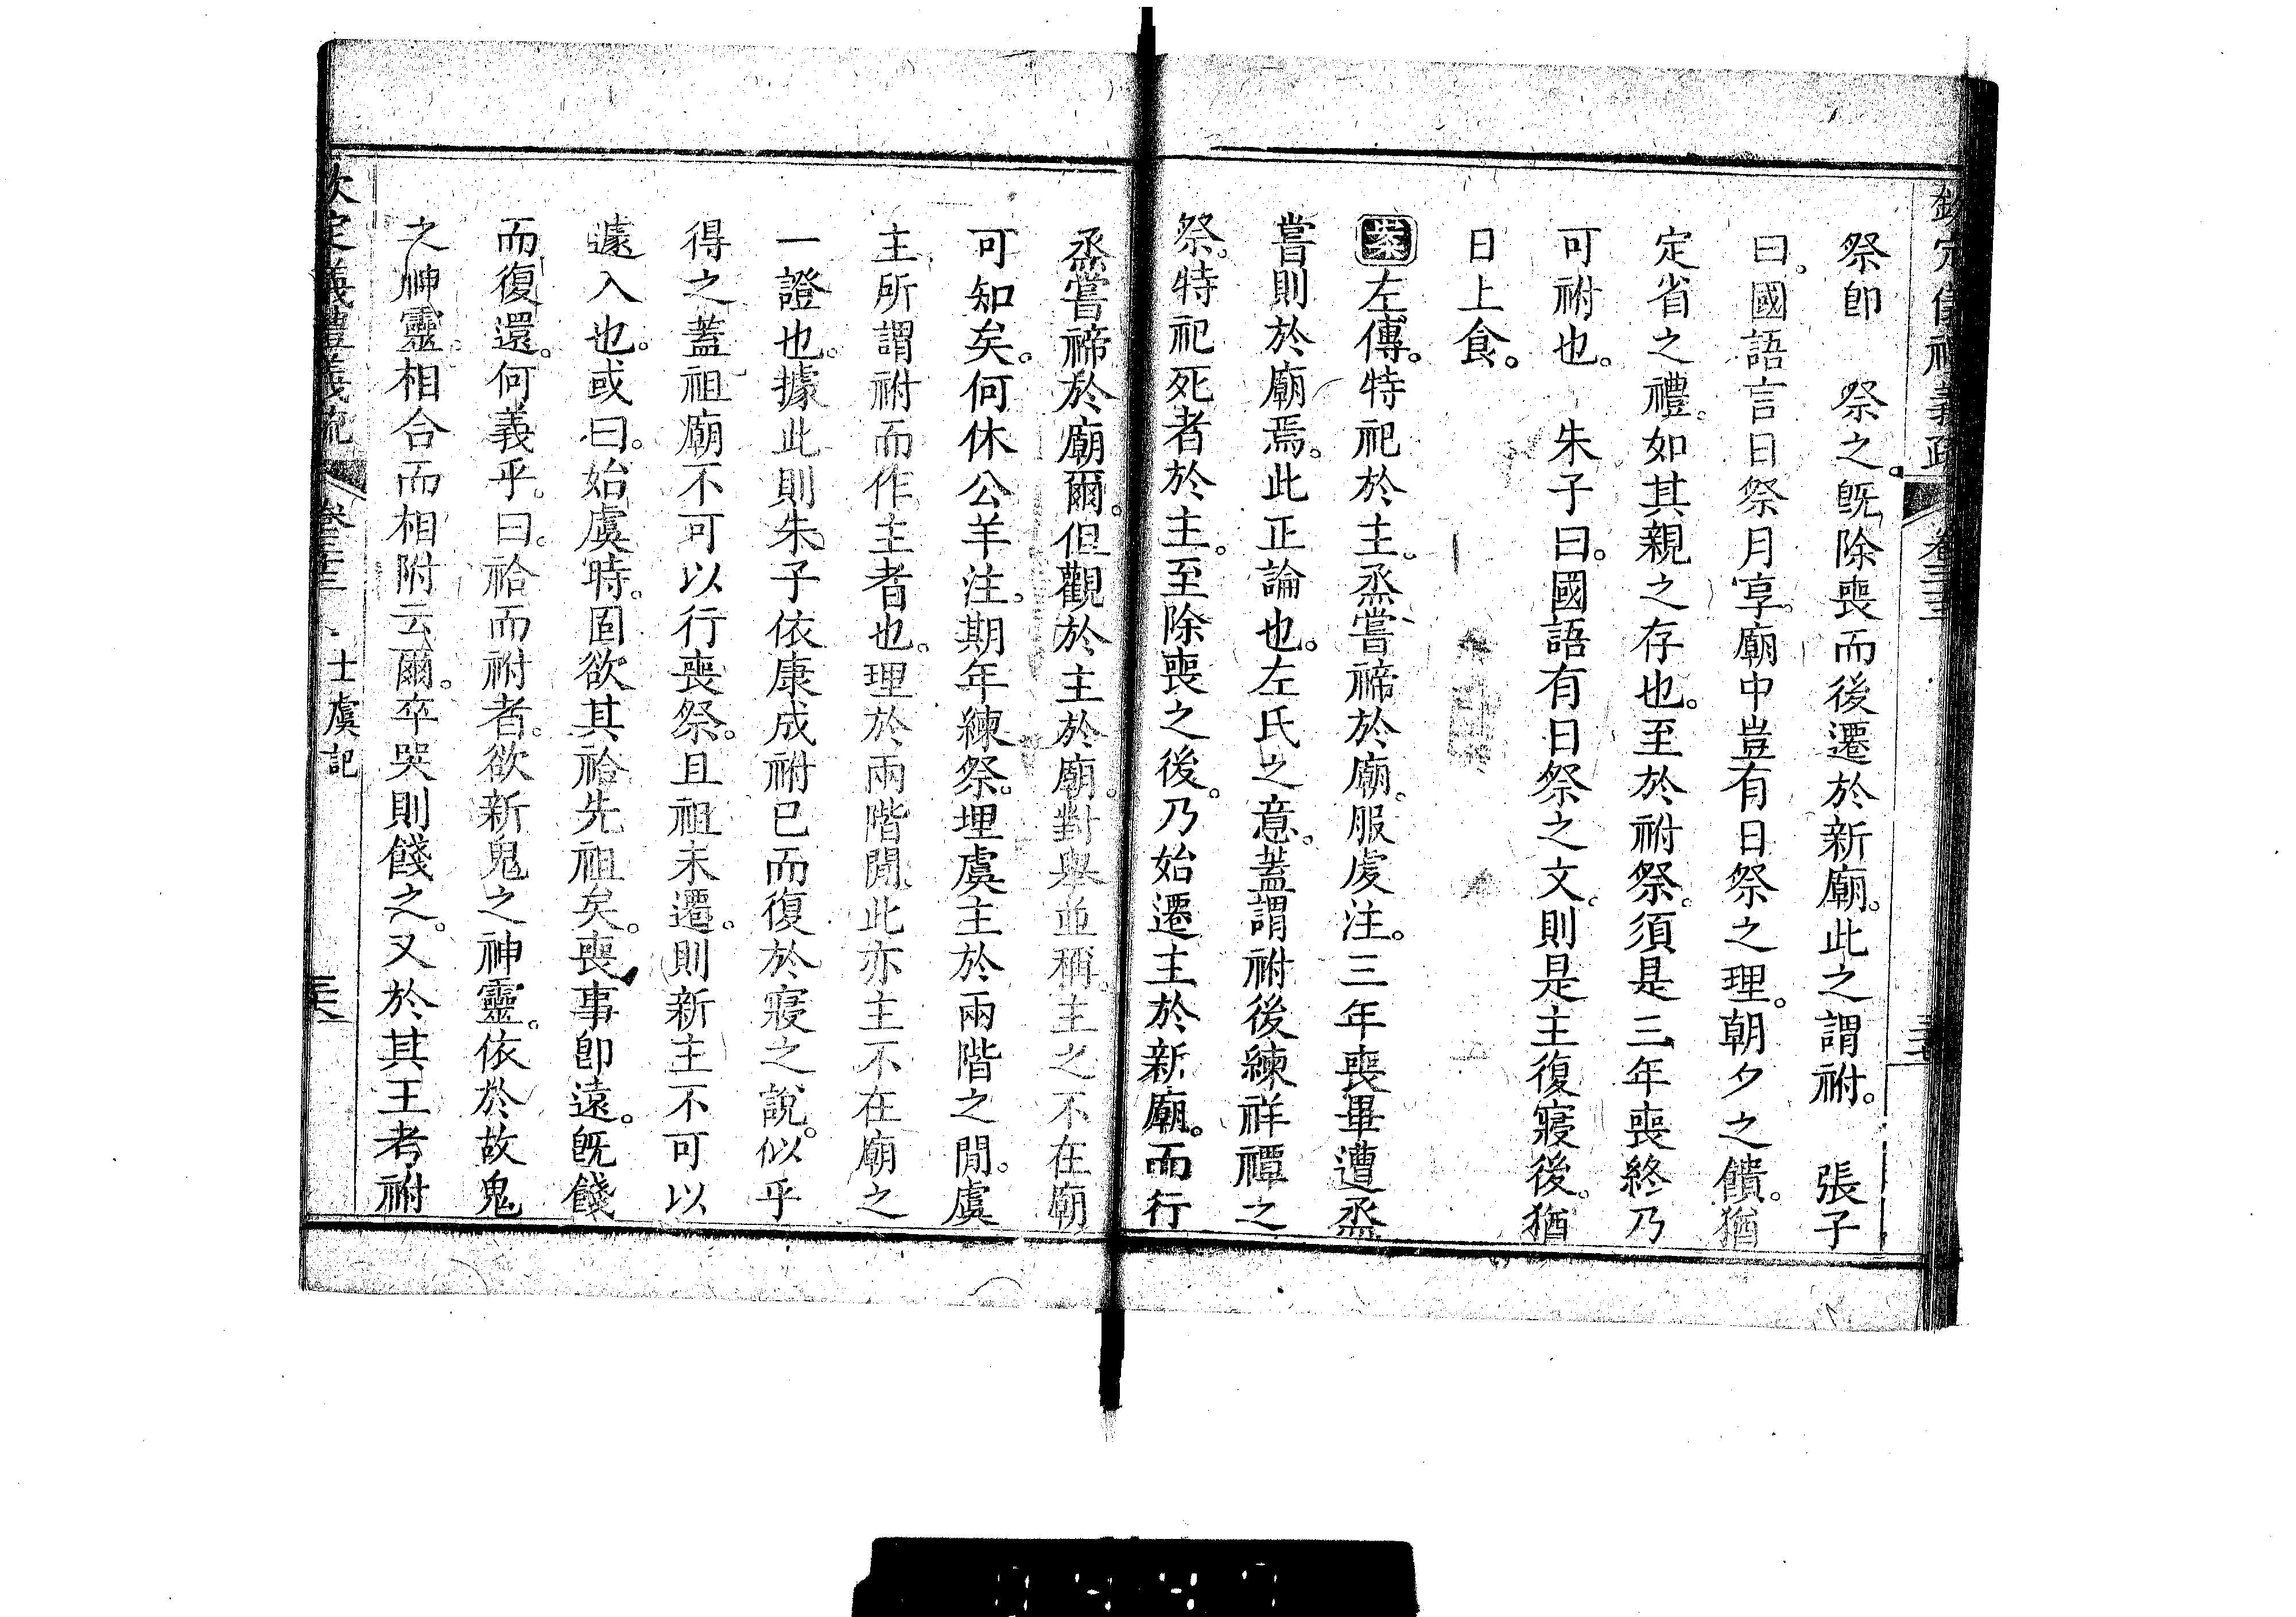 欽定儀禮義疏 卷三十三
祭卽 祭之。旣除喪而後遷於新廟。此之謂祔。 張子
曰。國語言日祭月享。廟中豈有日祭之理。朝夕之饋。猶
定省之禮。如其親之存也。至於祔祭。須是三年喪終乃
可祔也。 朱子曰。國語有日祭之文。則是主復寢後。猶
日上食。
案左傳。特祀於主。烝嘗禘於廟。服虔注。三年喪畢遭烝
嘗則於廟焉。此正論也。左氏之意。蓋謂祔後練祥禫之
祭。特祀死者於主。至除喪之後。乃始遷主於新廟。而行
烝嘗禘於廟爾。但觀於主於廟。對舉並稱。主之不在廟
可知矣。何休公羊注。期年練祭。埋虞主於兩階之閒。虞
主所謂祔而作主者也。理於兩階閒。此亦主不在廟之
一證也。據此則朱子依康成祔已而復於寢之說。似乎
得之蓋祖廟不可以行喪祭。且祖未遷。則新主不可以
遽入也。或曰。始虞時。固欲其祫先祖矣。喪事卽遠。旣餞
而復還。何義乎。曰。祫而祔者。欲新鬼之神靈。依於故鬼
之神靈。相合而相附云爾。卒哭則餞之。又於其王考祔
欽定儀禮義疏 卷三十三 士虞記